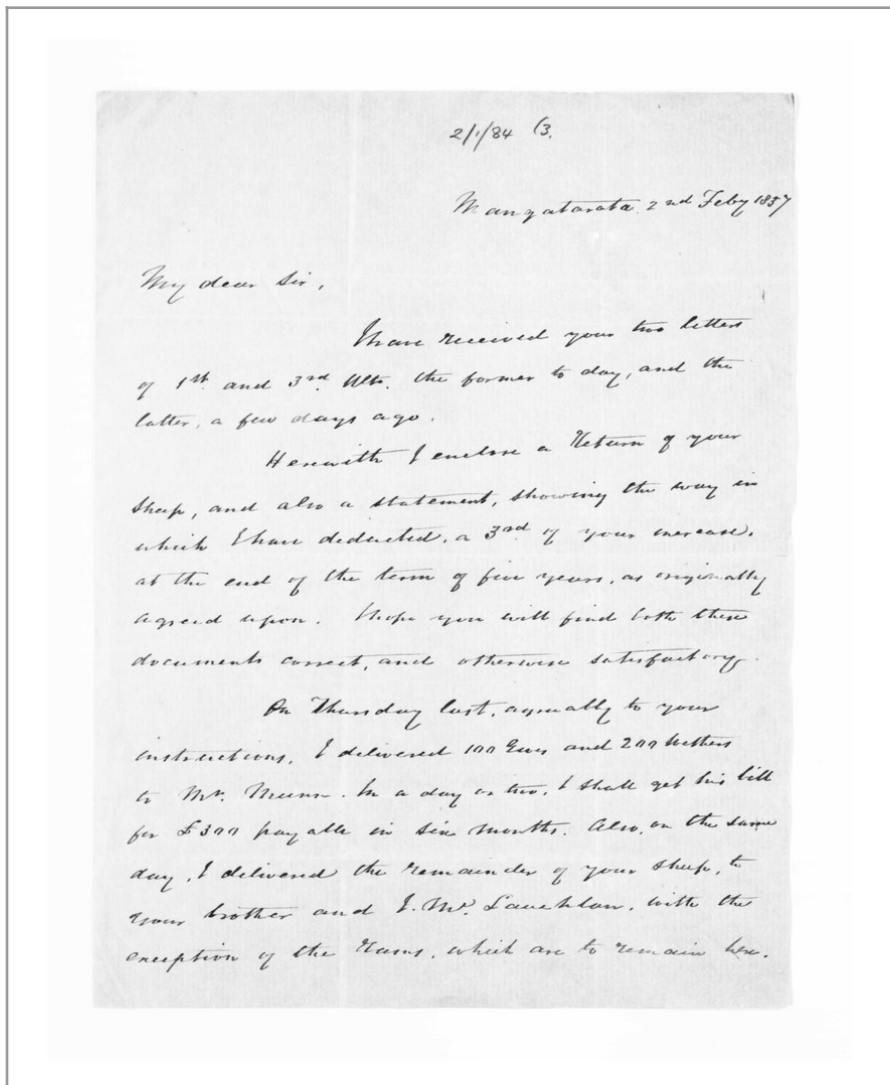 2/1/84 (3.
Mangatarata 2nd Feby 1857
My dear Sir,
I have received your two letters
of 1st. and 3rd. Ulto. the former to day, and the
latter, a few days ago.
Herewith I enclose a Return of your
Sheep, and also a statement, showing the way in
which I have deducted, a 3rd of your increase.
at the end of the term of five years, as originally
agreed upon. I hope you will find both these
documents correct, and otherwise satisfactory.
On Thursday last, agreeably to your
instructions, I delivered 100 Ewes and 200 Wethers
to Mr. Munn. In a day or two, I shall get his bill
for £300 payable in six months. Also, on the same
day, I delivered the remainder of your sheep, to
your brother and J. Mc. Lauchlan, with the
exception of the Rams, which are to remain here.